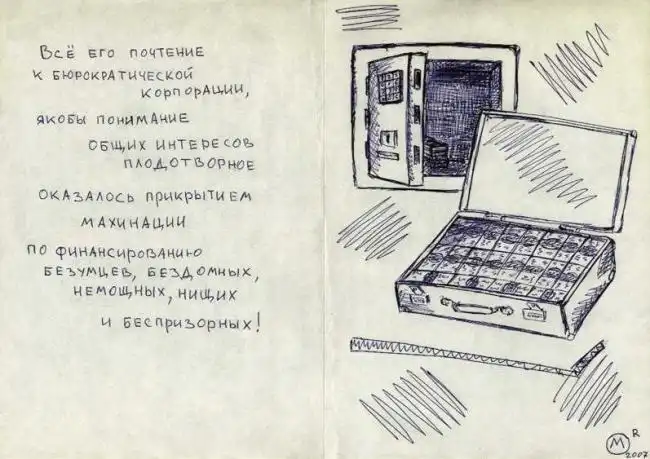 Всё его почтение
к бюрократической
корпорации,
якобы понимание
общих интересов
плодотворное
оказалось прикрытием
махинации
по финансированию
безумцев, бездомных,
немощных, нищих
и беспризорных!
M R
2007